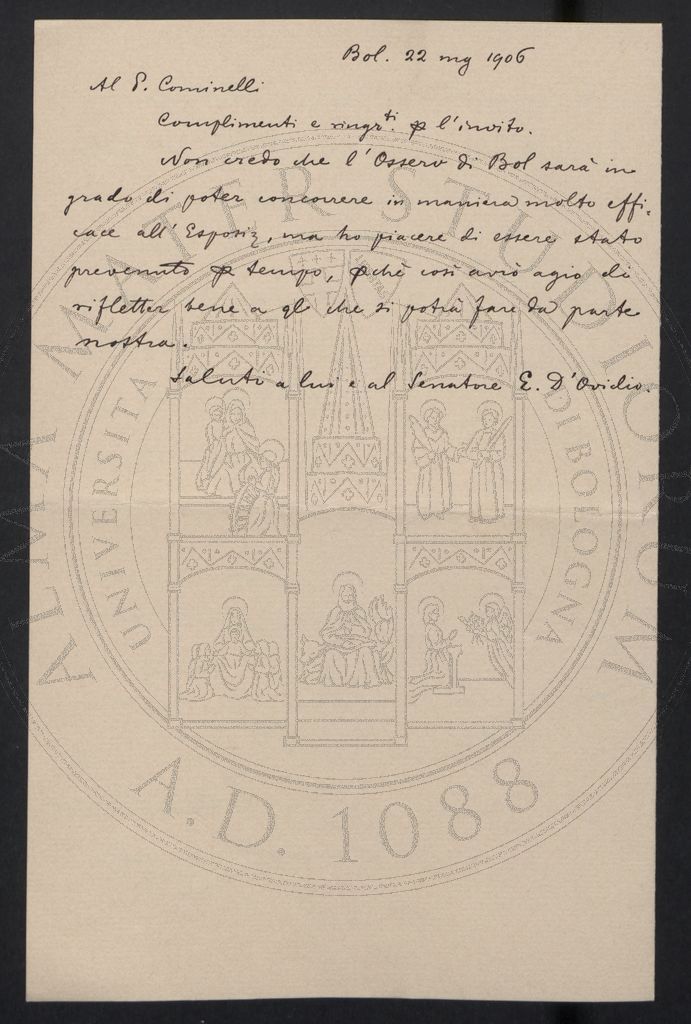 Bol. 22 mg 1906
Al P. Cominelli
Complimenti e ringrti. p l'invito.
Non credo che l'Osserv di Bol sarà in
grado di poter concorrere in maniera molto effi-
cace all'Esposiz, ma ho piacere di essere stato
prevenuto p tempo, pchè così avrò agio di
rifletter bene a ql che si potrà fare da parte
nostra.
Saluti a lui e al Senatore E. D'Ovidio.
ALMA MATER STUDIORUM
UNIVERSITÀ DI BOLOGNA
A.D. 1088